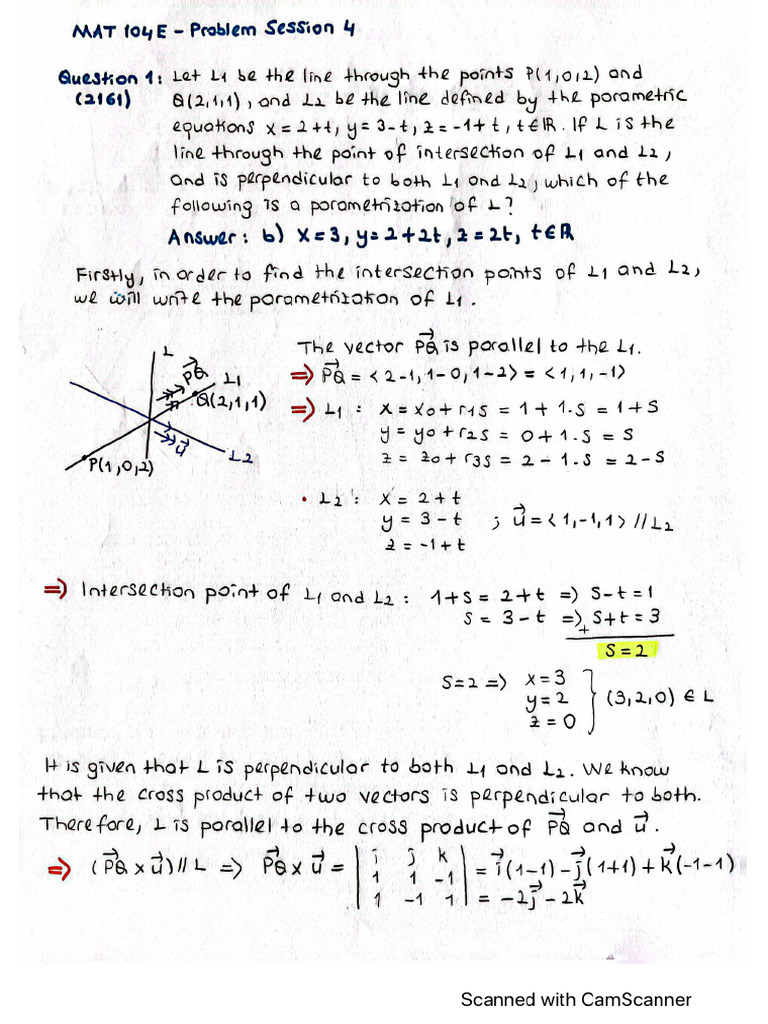 MAT 104E - Problem Session 4
Question 1: Let L1 be the line through the points P(1,0,2) and
(2161) Q(2,1,1), and L2 be the line defined by the parametric
equations x = 2+t, y = 3-t, z = -1+t, t∈R. If L is the
line through the point of intersection of L1 and L2,
and is perpendicular to both L1 and L2, which of the
following is a parametrization of L?
Answer: b) x=3, y=2+2t, z=2t, t∈R
Firstly, in order to find the intersection points of L1 and L2,
we will write the parametrization of L1.
L
PQ
L1
Q(2,1,1)
u
L2
P(1,0,2)
The vector PQ is parallel to the L1.
⇒ PQ = <2-1, 1-0, 1-2> = <1, 1, -1>
⇒ L1 : x = x0 + r1s = 1 + 1.s = 1+s
y = y0 + r2s = 0 + 1.s = s
z = z0 + r3s = 2 - 1.s = 2-s
• L2 : x = 2+t
y = 3-t ; u = <1,-1,1> // L2
z = -1+t
⇒ Intersection point of L1 and L2 : 1+s = 2+t ⇒ s-t = 1
s = 3-t ⇒ s+t = 3
+
s = 2
s=2 ⇒ x=3
y=2 } (3,2,0) ∈ L
z=0
It is given that L is perpendicular to both L1 and L2. We know
that the cross product of two vectors is perpendicular to both.
Therefore, L is parallel to the cross product of PQ and u.
⇒ (PQ x u) // L ⇒ PQ x u = | i j k | = i(1-1) - j(1+1) + k(-1-1)
| 1 1 -1 |
| 1 -1 1 | = -2j - 2k
Scanned with CamScanner